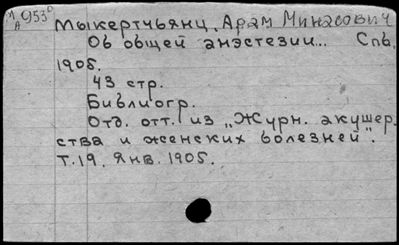 М/А 953⁰
Мыкертчьянц, Арам Минасович
Об общей анэстезии... Спб,
1905.
43 стр.
Библиогр.
Отд. отт. из „Журн. акушер.
ства и женских болезней".
Т.19. Янв. 1905.